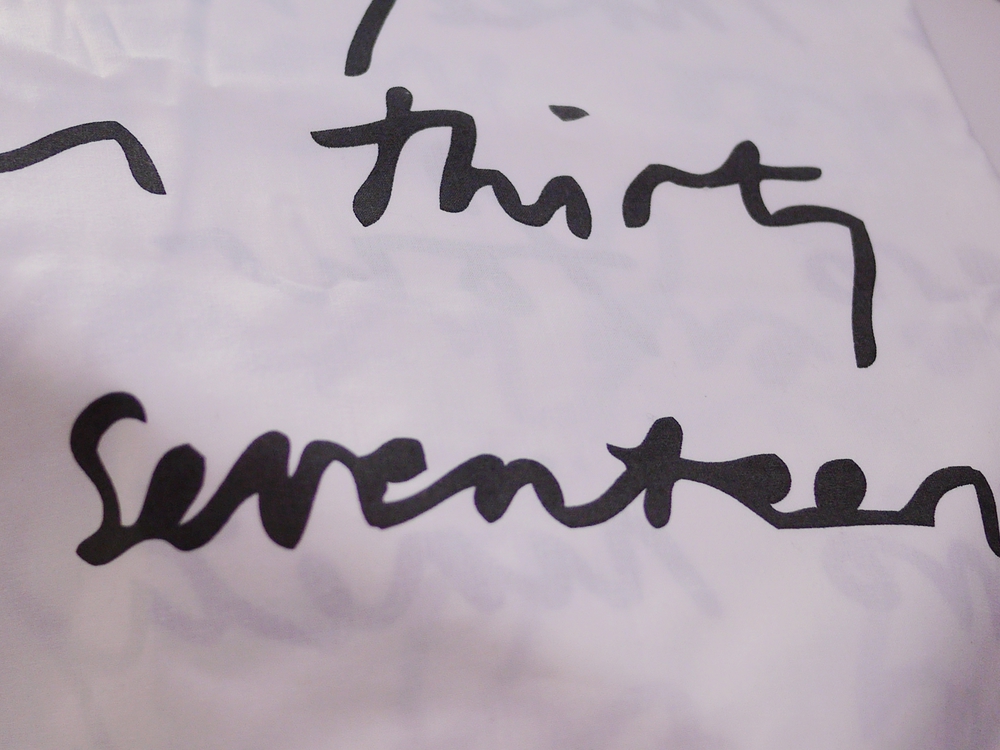 thirty
seventeen